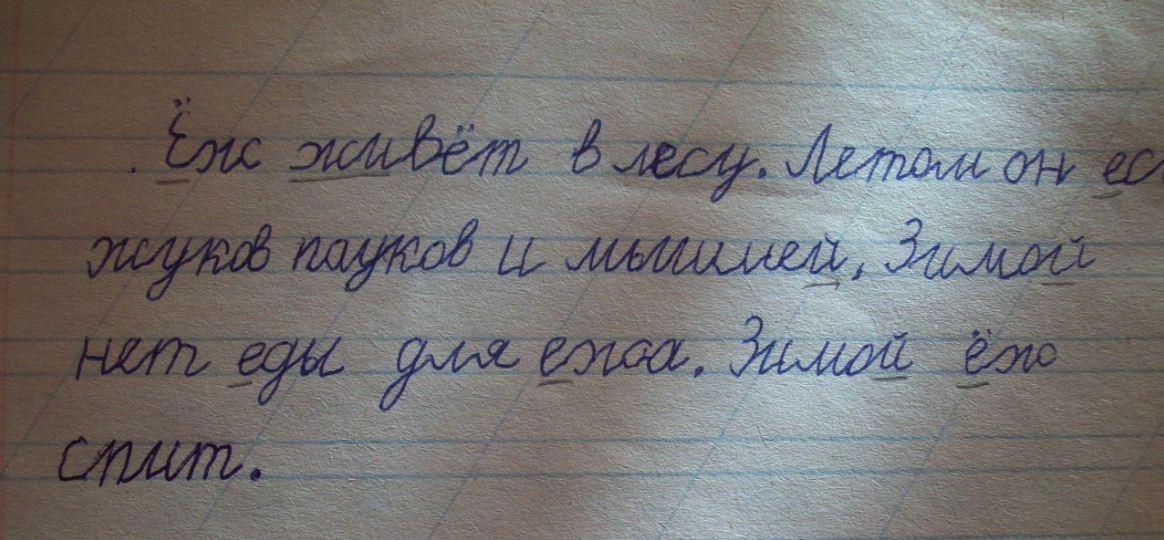 Ёж живёт в лесу. Летом он ес
жуков пауков и мышией. Зимой
нет еды для ежа. Зимой ёж
спит.